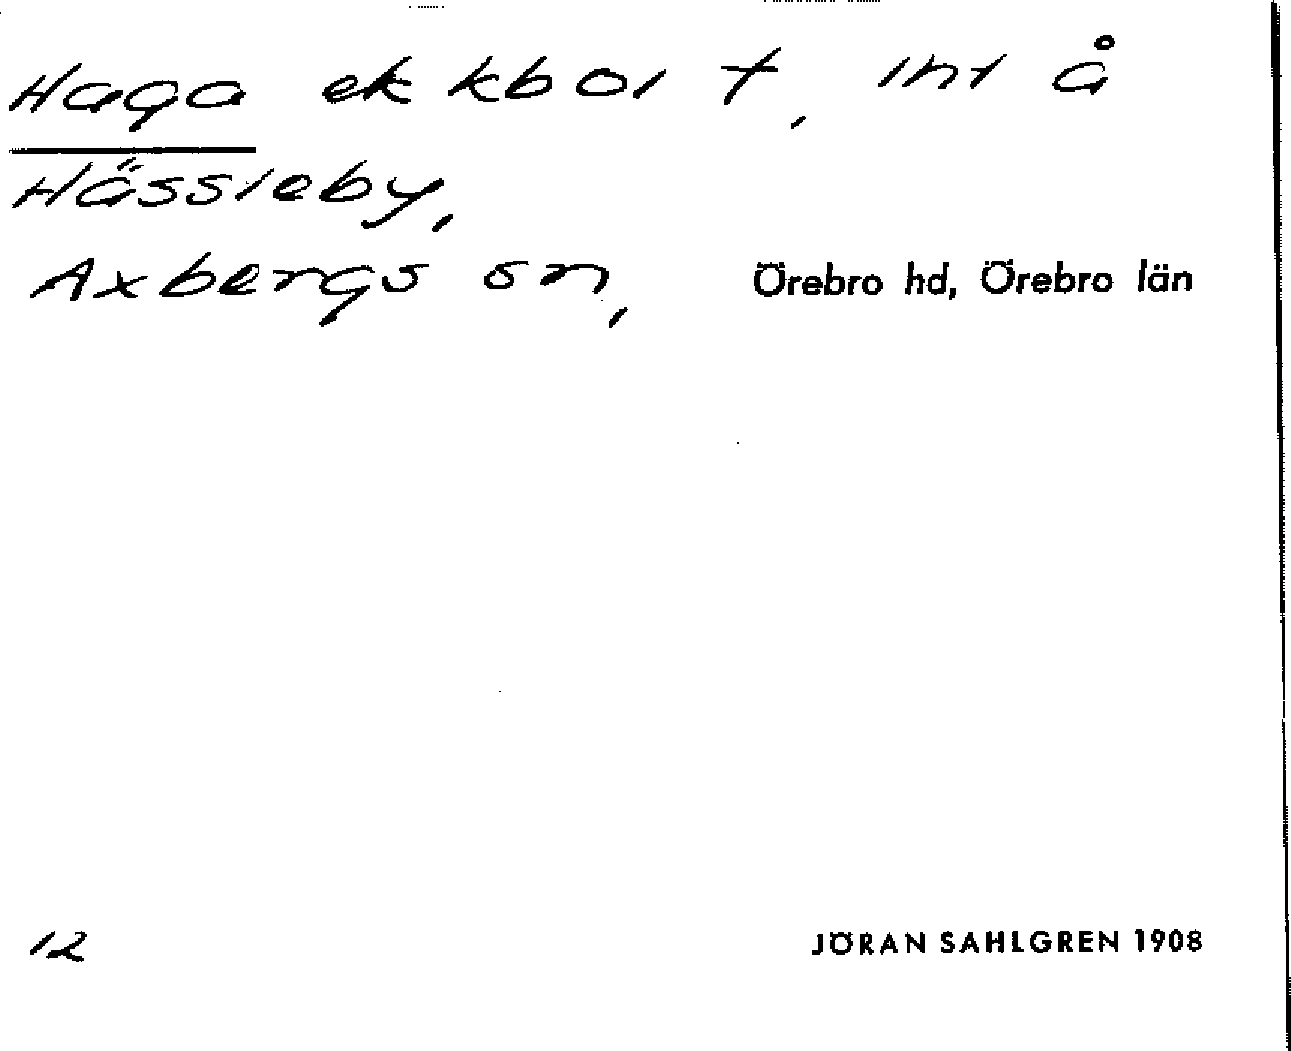 Haga ek kbol †, inl å
Hässleby,
Axbergs sn, Örebro hd, Örebro län
12 JÖRAN SAHLGREN 1908